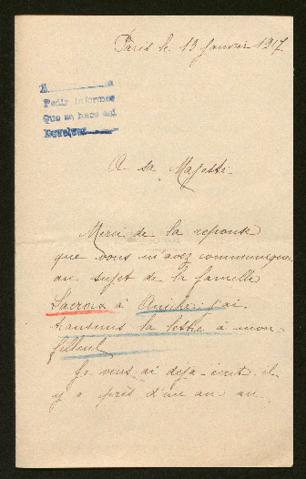 Paris le 13 Janvier 1917
Pedir informes
Que se hace así
A sa Majesté.
Merci de la réponse
que vous m'avez communiquée
au sujet de la famille
Lacroix à j'ai
transmis la lettre à mon
filleul
Je vous ai déjà écrit il
y a près d'un an au